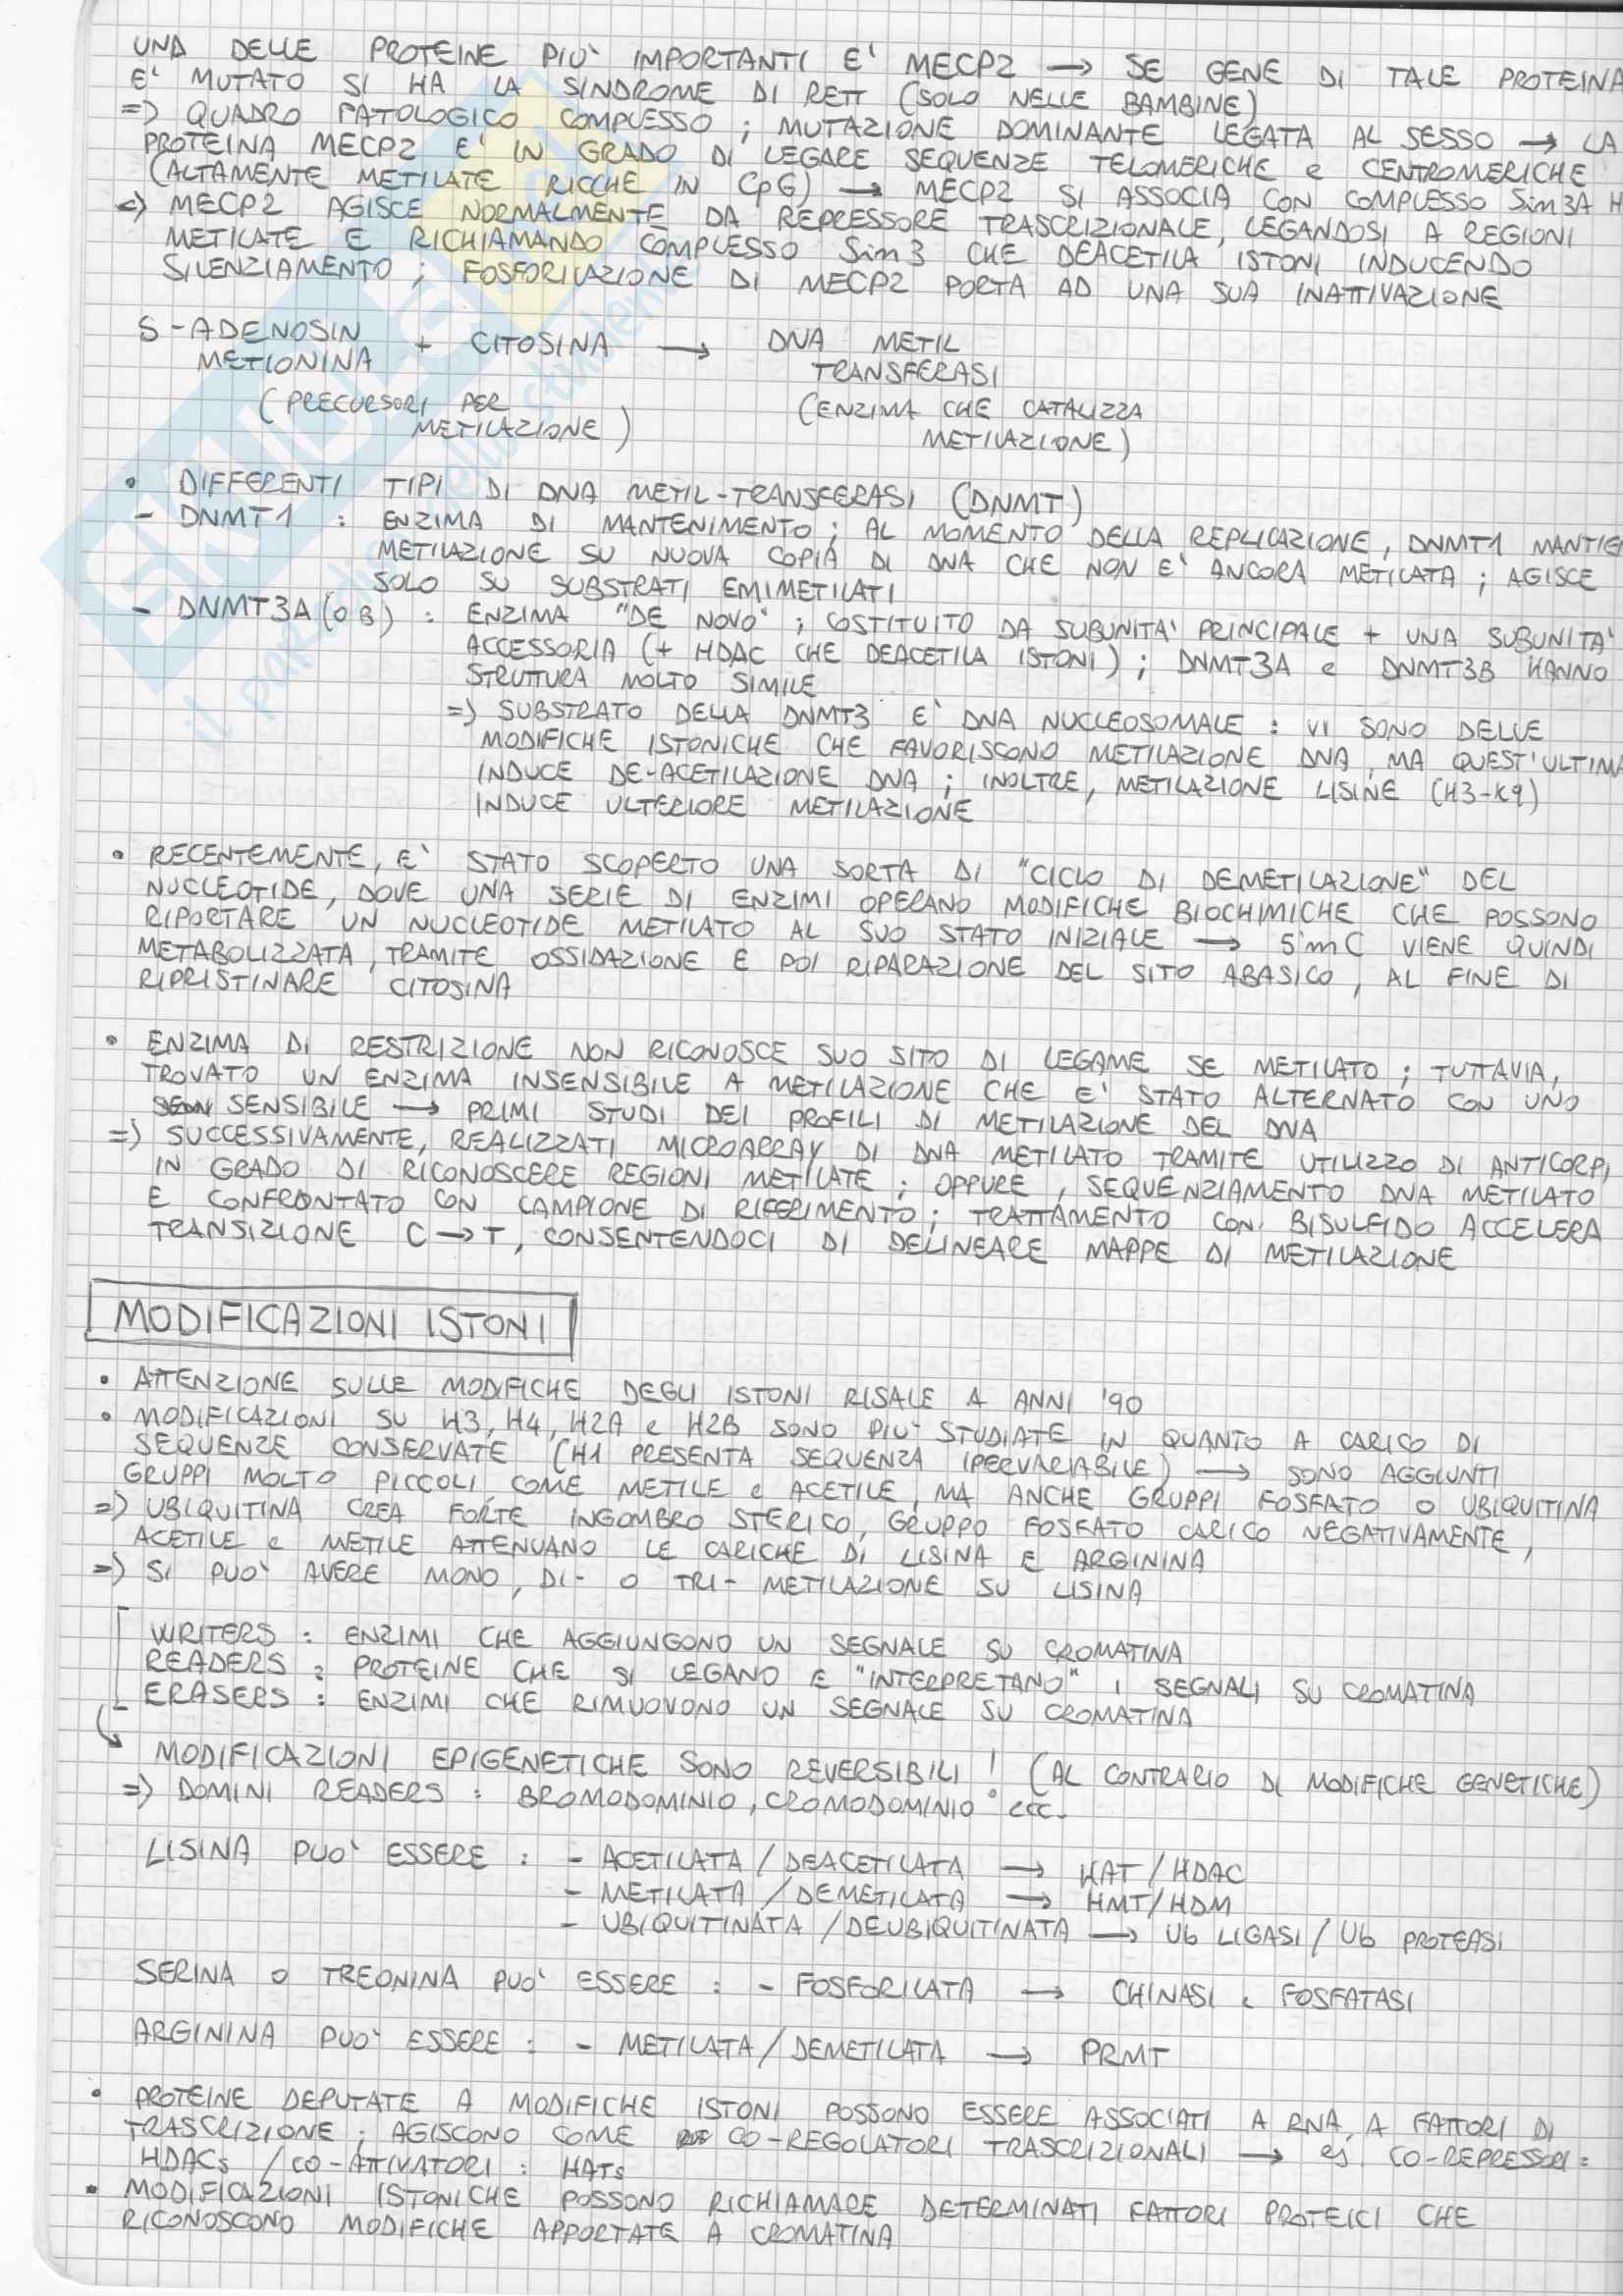 UNA DELLE PROTEINE PIU' IMPORTANTI E' MECP2 → SE GENE DI TALE PROTEINA
E' MUTATO SI HA LA SINDROME DI RETT (SOLO NELLE BAMBINE)
=> QUADRO PATOLOGICO COMPLESSO ; MUTAZIONE DOMINANTE LEGATA AL SESSO → LA
PROTEINA MECP2 E' IN GRADO DI LEGARE SEQUENZE TELOMERICHE e CENTROMERICHE
(ALTAMENTE METILATE RICCHE IN CpG) → MECP2 SI ASSOCIA CON COMPLESSO Sim3A H
<=> MECP2 AGISCE NORMALMENTE DA REPRESSORE TRASCRIZIONALE, LEGANDOSI A REGIONI
METILATE E RICHIAMANDO COMPLESSO Sim3 CHE DEACETILA ISTONI INDUCENDO
SILENZIAMENTO ; FOSFORILAZIONE DI MECP2 PORTA AD UNA SUA INATTIVAZIONE
S-ADENOSIN METIONINA + CITOSINA → DNA METIL TRANSFERASI
(PRECURSORI PER METILAZIONE) (ENZIMA CHE CATALIZZA METILAZIONE)
• DIFFERENTI TIPI DI DNA METIL-TRANSFERASI (DNMT)
- DNMT1 : ENZIMA DI MANTENIMENTO ; AL MOMENTO DELLA REPLICAZIONE, DNMT1 MANTIE
METILAZIONE SU NUOVA COPIA DI DNA CHE NON E' ANCORA METILATA ; AGISCE
SOLO SU SUBSTRATI EMIMETILATI
- DNMT3A (O B) : ENZIMA "DE NOVO" ; COSTITUITO DA SUBUNITA' PRINCIPALE + UNA SUBUNITA'
ACCESSORIA (+ HDAC CHE DEACETILA ISTONI) ; DNMT3A e DNMT3B HANNO
STRUTTURA MOLTO SIMILE
=> SUBSTRATO DELLA DNMT3 E' DNA NUCLEOSOMALE : VI SONO DELLE
MODIFICHE ISTONICHE CHE FAVORISCONO METILAZIONE DNA, MA QUEST'ULTIMA
INDUCE DE-ACETILAZIONE DNA ; INOLTRE, METILAZIONE LISINE (H3-K9)
INDUCE ULTERIORE METILAZIONE
• RECENTEMENTE, E' STATO SCOPERTO UNA SORTA DI "CICLO DI DEMETILAZIONE" DEL
NUCLEOTIDE, DOVE UNA SERIE DI ENZIMI OPERANO MODIFICHE BIOCHIMICHE CHE POSSONO
RIPORTARE UN NUCLEOTIDE METILATO AL SUO STATO INIZIALE → 5'mC VIENE QUINDI
METABOLIZZATA, TRAMITE OSSIDAZIONE E POI RIPARAZIONE DEL SITO ABASICO, AL FINE DI
RIPRISTINARE CITOSINA
• ENZIMA DI RESTRIZIONE NON RICONOSCE SUO SITO DI LEGAME SE METILATO ; TUTTAVIA,
TROVATO UN ENZIMA INSENSIBILE A METILAZIONE CHE E' STATO ALTERNATO CON UNO
SENSIBILE → PRIMI STUDI DEI PROFILI DI METILAZIONE DEL DNA
=> SUCCESSIVAMENTE, REALIZZATI MICROARRAY DI DNA METILATO TRAMITE UTILIZZO DI ANTICORPI
IN GRADO DI RICONOSCERE REGIONI METILATE ; OPPURE, SEQUENZIAMENTO DNA METILATO
E CONFRONTATO CON CAMPIONE DI RIFERIMENTO ; TRATTAMENTO CON BISULFIDO ACCELERA
TRANSIZIONE C→T, CONSENTENDOCI DI DELINEARE MAPPE DI METILAZIONE
MODIFICAZIONI ISTONI
• ATTENZIONE SULLE MODIFICHE DEGLI ISTONI RISALE A ANNI '90
• MODIFICAZIONI SU H3, H4, H2A e H2B SONO PIU' STUDIATE IN QUANTO A CARICO DI
SEQUENZE CONSERVATE (H1 PRESENTA SEQUENZA IPERVARIABILE) → SONO AGGIUNTI
GRUPPI MOLTO PICCOLI, COME METILE e ACETILE, MA ANCHE GRUPPI FOSFATO O UBIQUITINA
=> UBIQUITINA CREA FORTE INGOMBRO STERICO, GRUPPO FOSFATO CARICO NEGATIVAMENTE,
ACETILE e METILE ATTENUANO LE CARICHE DI LISINA E ARGININA
=> SI PUO' AVERE MONO, DI- O TRI- METILAZIONE SU LISINA
WRITERS : ENZIMI CHE AGGIUNGONO UN SEGNALE SU CROMATINA
READERS : PROTEINE CHE SI LEGANO E "INTERPRETANO" I SEGNALI SU CROMATINA
ERASERS : ENZIMI CHE RIMUOVONO UN SEGNALE SU CROMATINA
MODIFICAZIONI EPIGENETICHE SONO REVERSIBILI ! (AL CONTRARIO DI MODIFICHE GENETICHE)
=> DOMINI READERS : BROMODOMINIO, CROMODOMINIO ecc.
LISINA PUO' ESSERE : - ACETILATA / DEACETILATA → HAT / HDAC
- METILATA / DEMETILATA → HMT/HDM
- UBIQUITINATA / DEUBIQUITINATA → Ub LIGASI / Ub PROTEASI
SERINA O TREONINA PUO' ESSERE : - FOSFORILATA → CHINASI e FOSFATASI
ARGININA PUO' ESSERE : - METILATA / DEMETILATA → PRMT
• PROTEINE DEPUTATE A MODIFICHE ISTONI POSSONO ESSERE ASSOCIATI A RNA, A FATTORI DI
TRASCRIZIONE ; AGISCONO COME CO-REGOLATORI TRASCRIZIONALI → es. CO-REPRESSORI :
HDACs / CO-ATTIVATORI : HATs
• MODIFICAZIONI ISTONICHE POSSONO RICHIAMARE DETERMINATI FATTORI PROTEICI CHE
RICONOSCONO MODIFICHE APPORTATE A CROMATINA